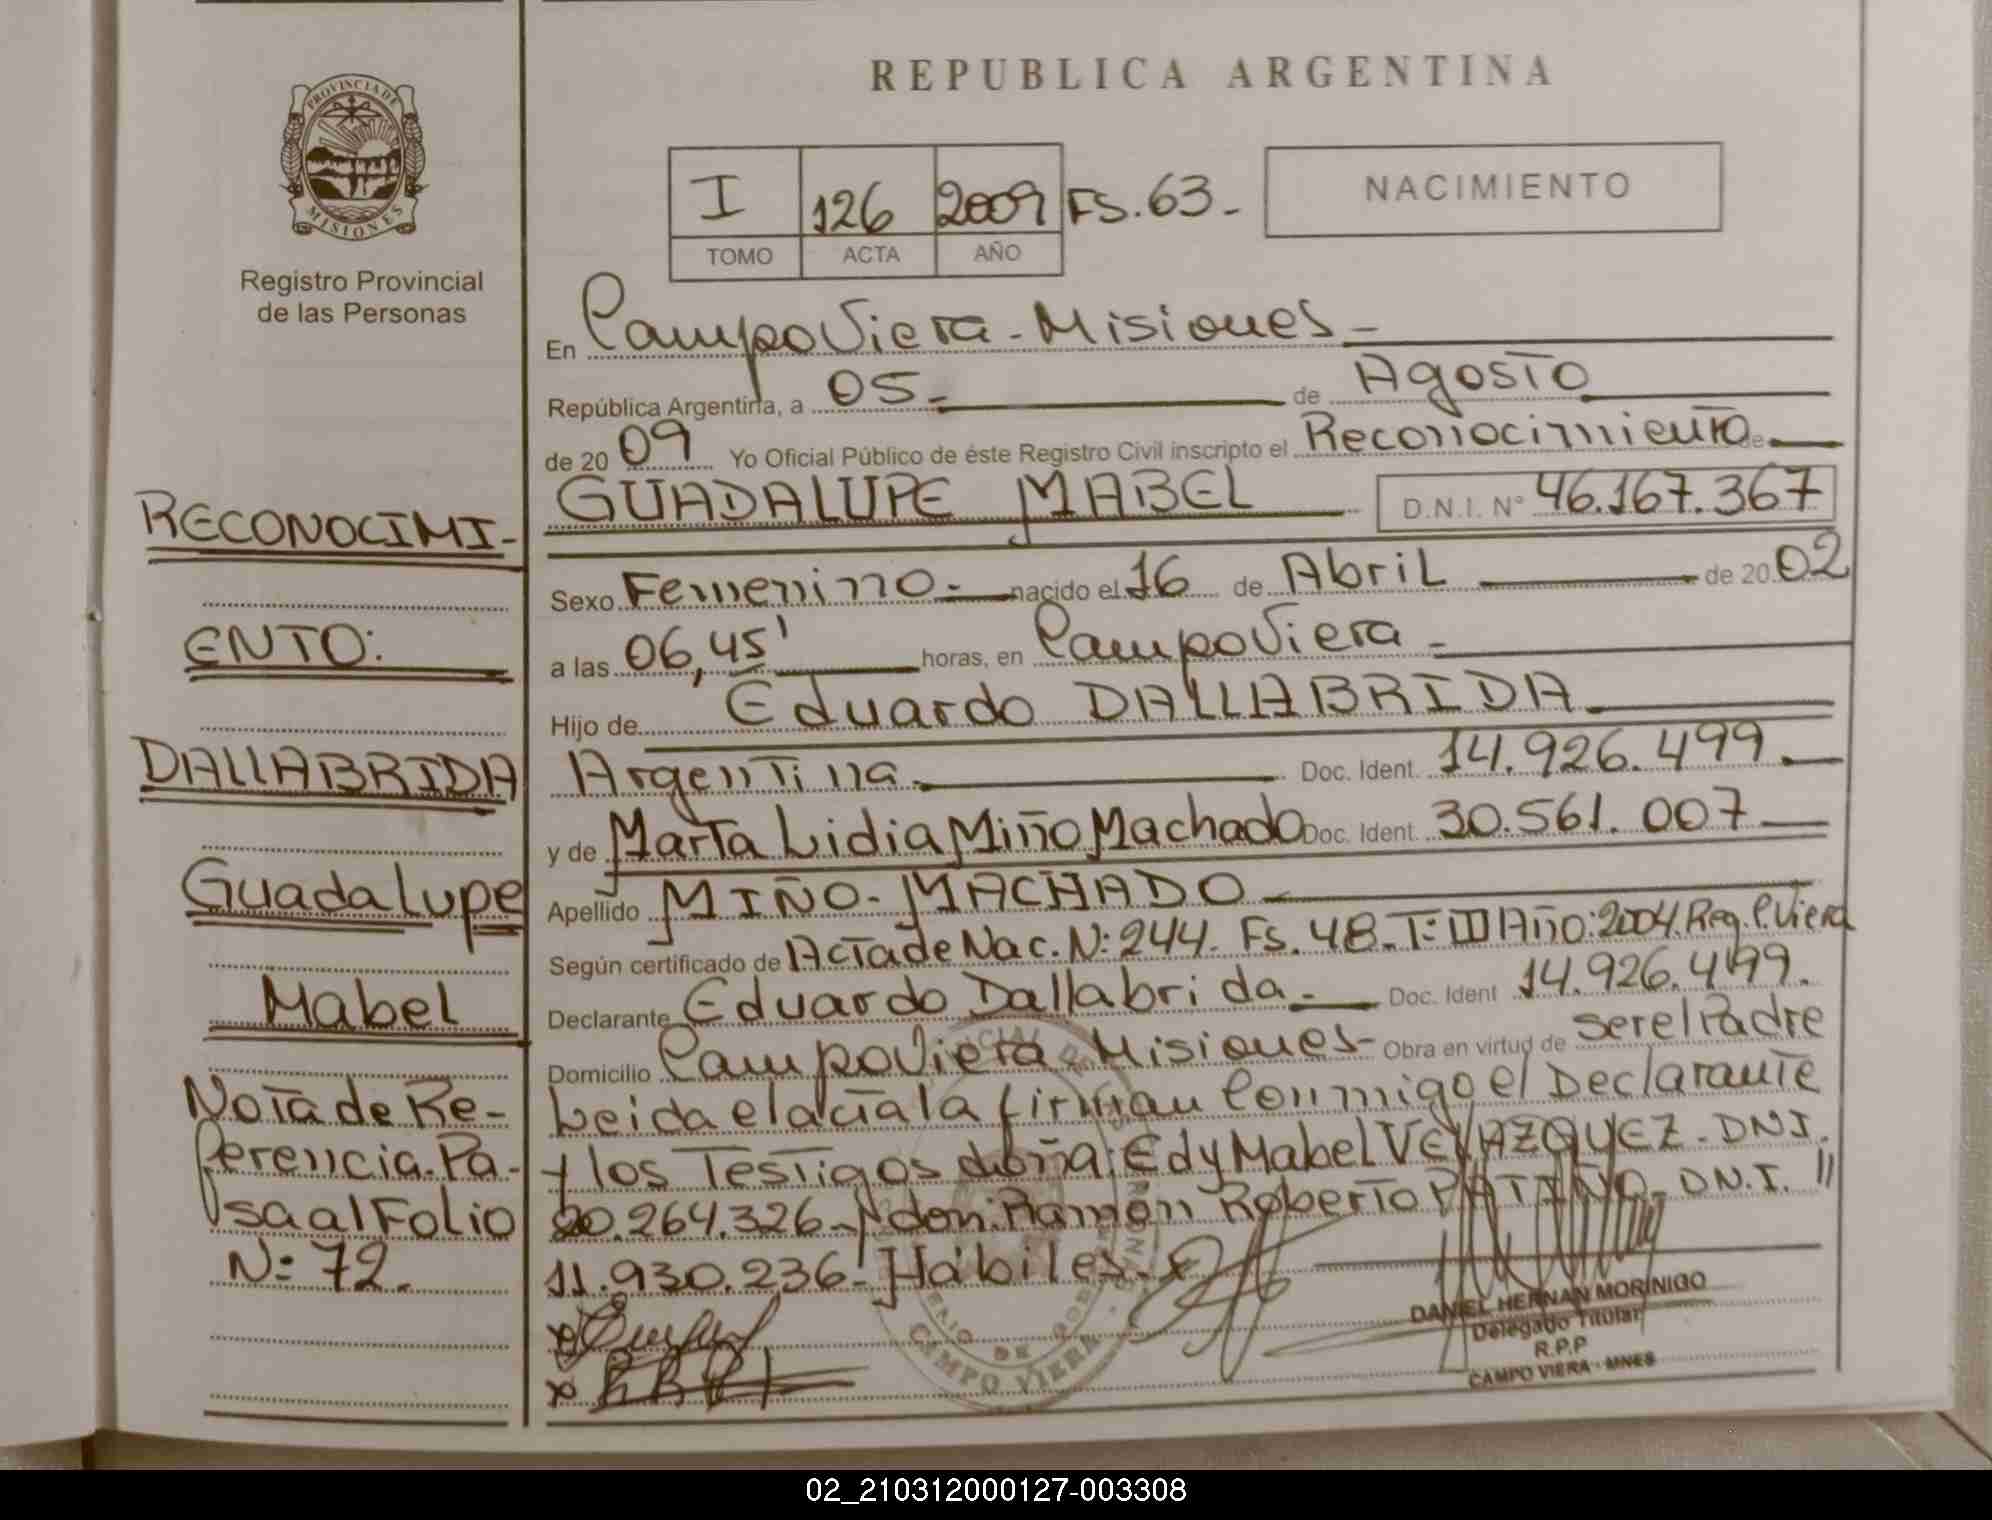 PROVINCIA DE
MISIONES
Registro Provincial
de las Personas
RECONOCIMI-
ENTO:
DALLABRIDA
Guadalupe
Mabel
Nota de Re-
ferencia. Pa-
sa al Folio
N: 72.
REPUBLICA ARGENTINA
I 126 2009 FS. 63-
TOMO ACTA AÑO
NACIMIENTO
En Campo Viera - Misiones -
República Argentina, a 05 - de Agosto
de 20 09 Yo Oficial Público de éste Registro Civil inscripto el Reconocimiento de
GUADALUPE MABEL D.N.I. N° 46.167.367
Sexo Femenino - nacido el 16 de Abril de 20 02
a las 06,45' horas, en Campo Viera -
Hijo de Eduardo DALLABRIDA
Argentina Doc. Ident. 14.926.499
y de Marta Lidia Miño Machado Doc. Ident. 30.561.007
Apellido MIÑO - MACHADO
Según certificado de Acta de Nac. N: 244. Fs. 48. T: III Año: 2004. Reg. C. Viera
Declarante Eduardo Dallabrida Doc. Ident 14.926.499.
Domicilio Campo Viera Misiones - Obra en virtud de ser el Padre
Leida el acta la firman conmigo el Declarante
y los Testigos doña: Edy Mabel VELAZQUEZ - DNI.
20.264.326 - y don: Ramon Roberto PATIÑO - D.N.I. //
11.930.236! Hábiles -
CAMPO VIERA
DANIEL HERNAN MORINIGO
Delegado Titular
R.P.P
CAMPO VIERA - MNES
02_210312000127-003308